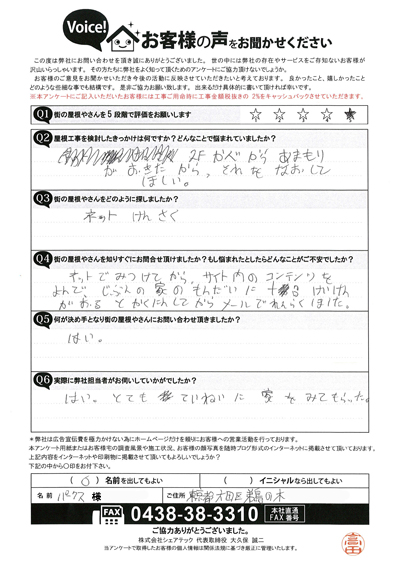 Voice!
お客様の声をお聞かせください
この度は弊社にお問い合わせを頂き誠にありがとうございました。世の中には弊社の存在やサービスをご存知ないお客様が
沢山いらっしゃいます。その方たちに弊社をよく知って頂くためのアンケートにご協力頂けないでしょうか。
お客様のご意見をお聞かせいただき今後の活動に反映させていただきたいと考えております。良かったこと、嬉しかったこと
どのような些細な事でも結構です。是非ご協力お願い致します。出来るだけ具体的に書いて頂ければ幸いです。
※本アンケートにご記入いただいたお客様には工事ご用命時に工事金額税抜きの 2%をキャッシュバックさせていただきます。
Q1 街の屋根やさんを5段階で評価をお願いします ☆ ☆ ☆ ☆ ★
Q2 屋根工事を検討したきっかけは何ですか？どんなことで悩まれていましたか？
2F かべから あまもり
がおきたから、それをなおして
ほしい。
Q3 街の屋根やさんをどのように探しましたか？
ネット けんさく
Q4 街の屋根やさんを知りすぐにお問合せ頂けましたか？もし悩まれたとしたらどんなことがご不安でしたか？
ネットでみつけてから、サイト内のコンテンツを
よんで じぶんの家のもんだいに けいけん
がある とかくにんしてから メールでれんらくしました。
Q5 何が決め手となり街の屋根やさんにお問い合わせ頂きましたか？
はい。
Q6 実際に弊社担当者がお伺いしていかがでしたか？
はい。とても ていねいに 家をみてもらった。
＊弊社は広告宣伝費を極力かけない為にホームページだけを頼りにお客様への営業活動を行っております。
本アンケート用紙またはお客様宅の調査風景や施工状況、お客様の顔写真を随時ブログ形式のインターネットに掲載させて頂いております。
上記内容をインターネットや印刷物に掲載させて頂いてもよろしいでしょうか？
下記の中から〇印をお付下さい。
( 〇 ) 名前を出してもよい ( ) イニシャルなら出してもよい
名前 パクス 様 ご住所 東京都大田区鵜の木
FAX 0438-38-3310 本社直通 FAX番号
ご協力ありがとうございました。
株式会社シェアテック 代表取締役 大久保 誠二
当アンケートで取得したお客様の個人情報は関係法規に基づき厳正に管理いたします。